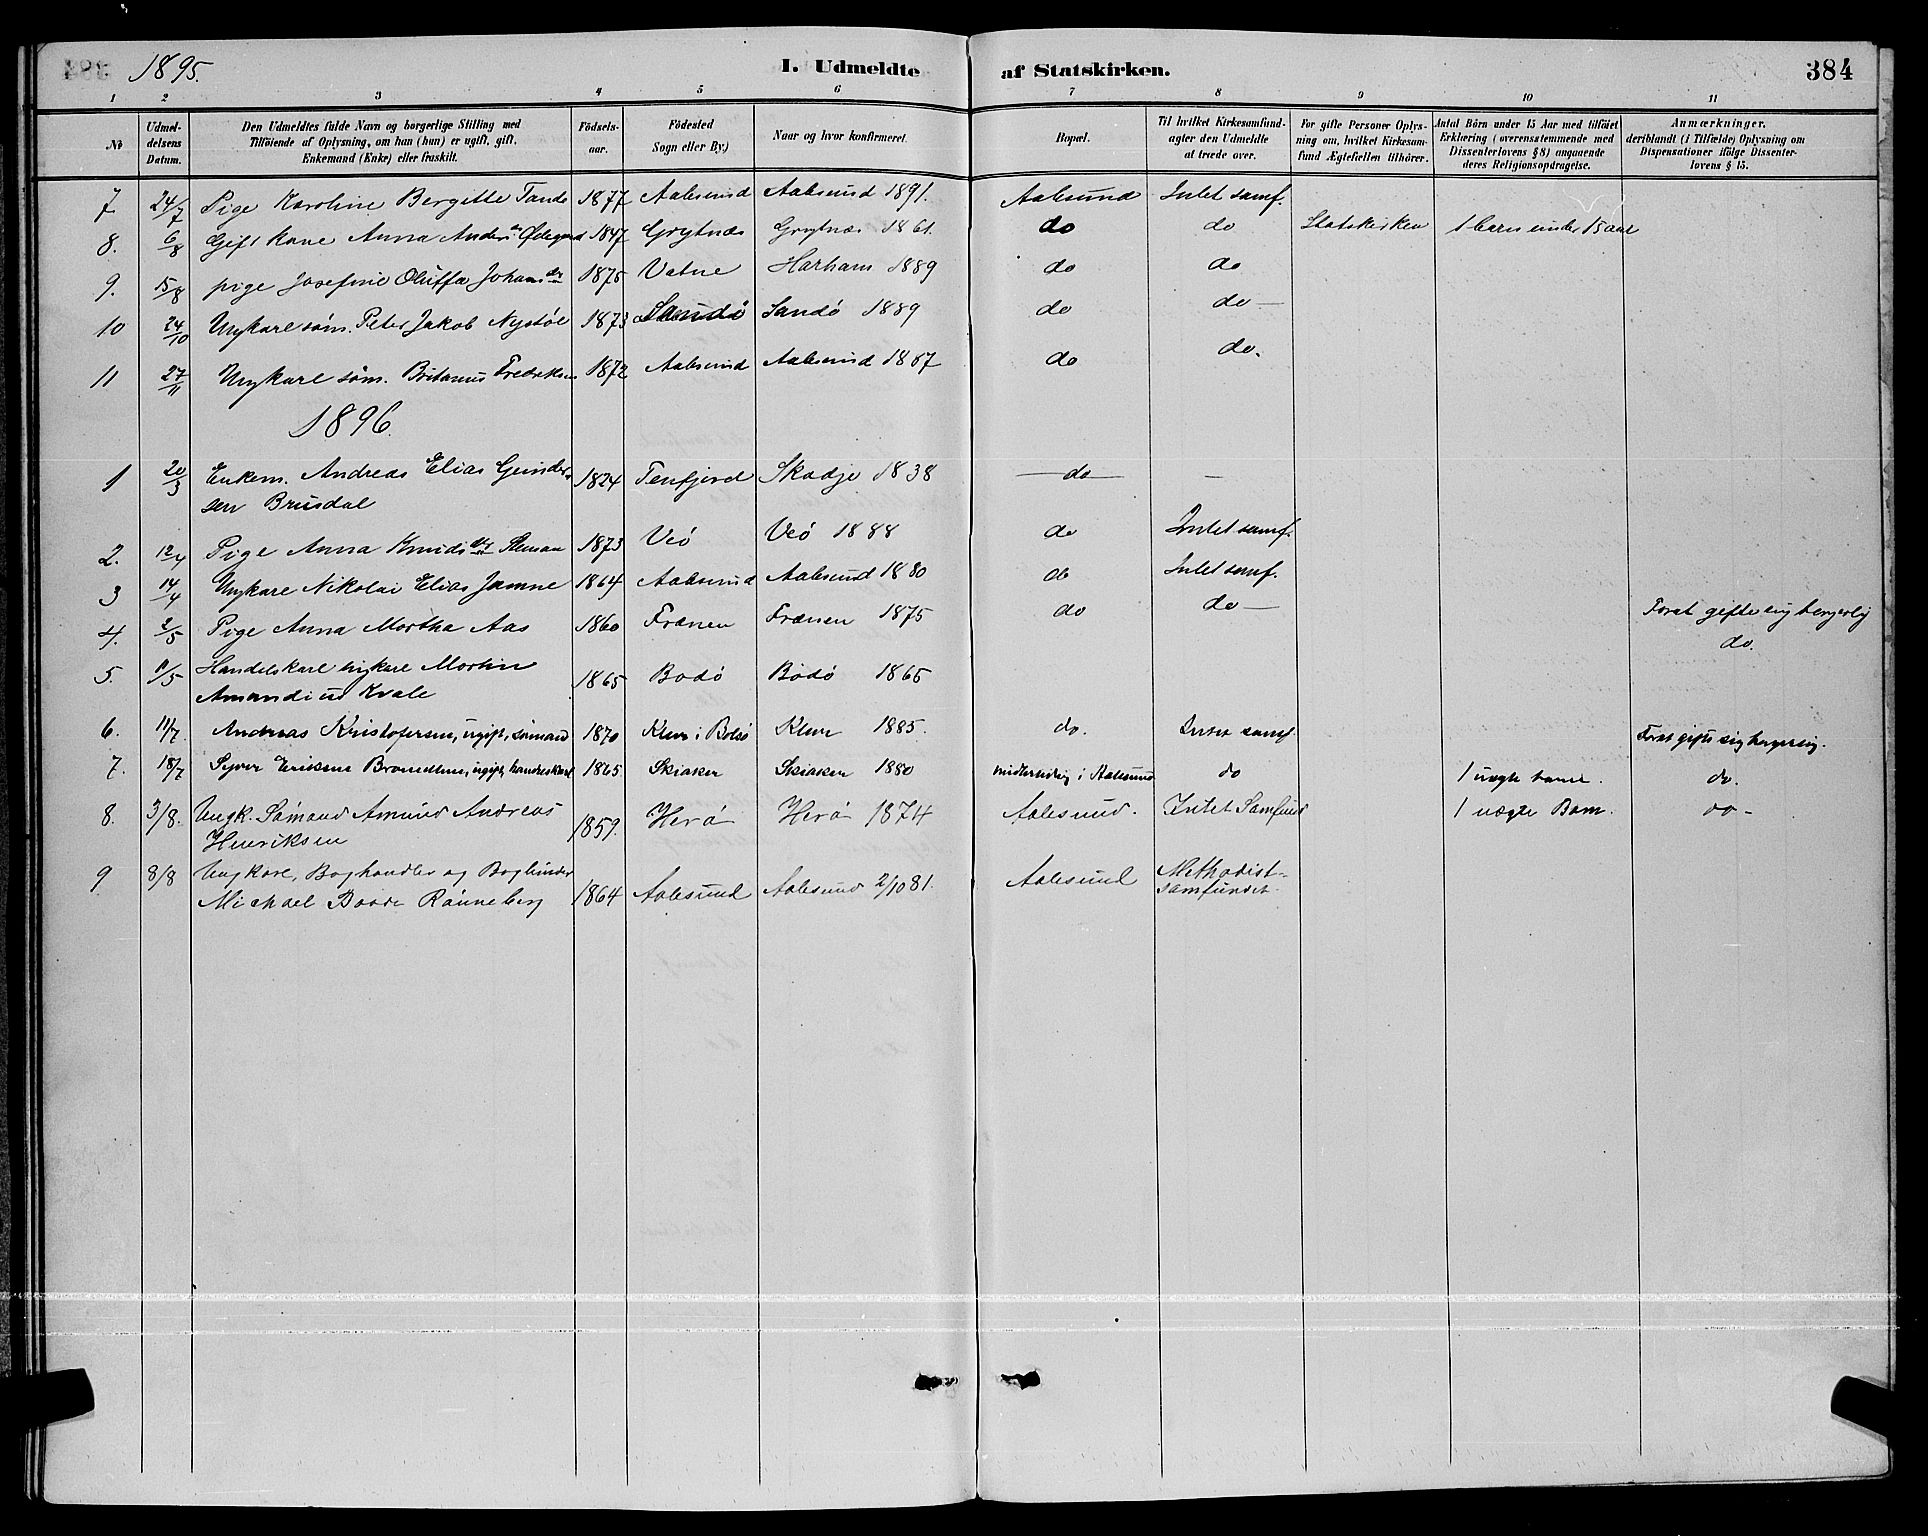 1895.
I. Udmeldte af Statskirken.
384
1 2 3 4 5 6 7 8 9 10 11
No
Udmel-
delsens
Datum.
Den Udmeldtes fulde Navn og borgerlige Stilling med
Tilföiende af Oplysning, om han (hun) er ugift, gift,
Enkemand (Enke) eller fraskilt.
Födsels-
aar.
Födested
Sogn eller By)
Naar og hvor konfirmeret.
Bopæl.
Til hvilket Kirkesamfund-
agter den Udmeldte
at træde over.
For gifte Personer Oplys-
ning om, hvilket Kirkesam-
fund Ægtefællen tilhører.
Antal Börn under 15 Aar med tilföiet
Erklæring (overensstemmende med
Dissenterlovens §8) angaaende
deres Religionsopdragelse.
Anmærkninger.
deriblandt (i Tilfælde) Oplysning om
Dispensationer ifölge Dissenter-
lovens § 15.
7 24/7 Pige Karoline Bergitte Tande 1877 Aalesund Aalesund 1891. Aalesund Intet samf.
8. 6/8 Gift kone Anna Anders Ødegaard 1847 Grytnæs Grytnæs 1861. do do Statskirken 1 barn under 15 aar
9. 15/8 pige Josefine Oluffa Johansdr 1875 Vatne Harham 1889 do do
10 24/10 Ungkarl søm. Peter Jakob Nystøl 1873 Sandö Sandö 1889 do do —
11 27/11 Ungkarl søm. Britanus Fredriksen 1872 Aalesund Aalesund 1867 do do.
1896.
1 20/3 Enkem. Andreas Elias Gunder-
sen Brusdal 1824 Tenfjord Skodje 1838 — do — —
2. 12/4 Pige Anna Knudsdr 1873 Veö Veö 1888 do Intet samf.
3 14/4 Ungkarl Nikolai Elias Jamne 1864 Aalesund Aalesund 1880 do Intet samf.
4. 2/5 Pige Anna Martha Aas 1860 Frænen Frænen 1875 do do — Forat gifte sig borgerlig
5. 11/5 Handelskarl ungkarl Martin
Amandius Kvale 1865 Bodö Bodö 1865 do.
6. 11/7 Andreas Kristofersen, ugift, sømand 1870 Kleve i Bolsö Kleve 1885. do. Intet samf. Forat gifte sig borgerlig.
7. 18/7 Syver Eriksen ugift, handelskarl 1865 Skiaker Skiaker 1880 midlertidig i Aalesund do 1 uægte barn. do.
8. 3/8. Ungk. Sømand Amund Andreas
Henriksen 1859. Herö Herö 1874 Aalesund. Intet Samfund 1 uægte Barn. do -
9 8/8 Ungkarl, Boghandler og Bogbinder
Michael Baade Rønneberg 1864 Aalesund Aalesund 2/10 81. Aalesund Methodist-
samfundet.